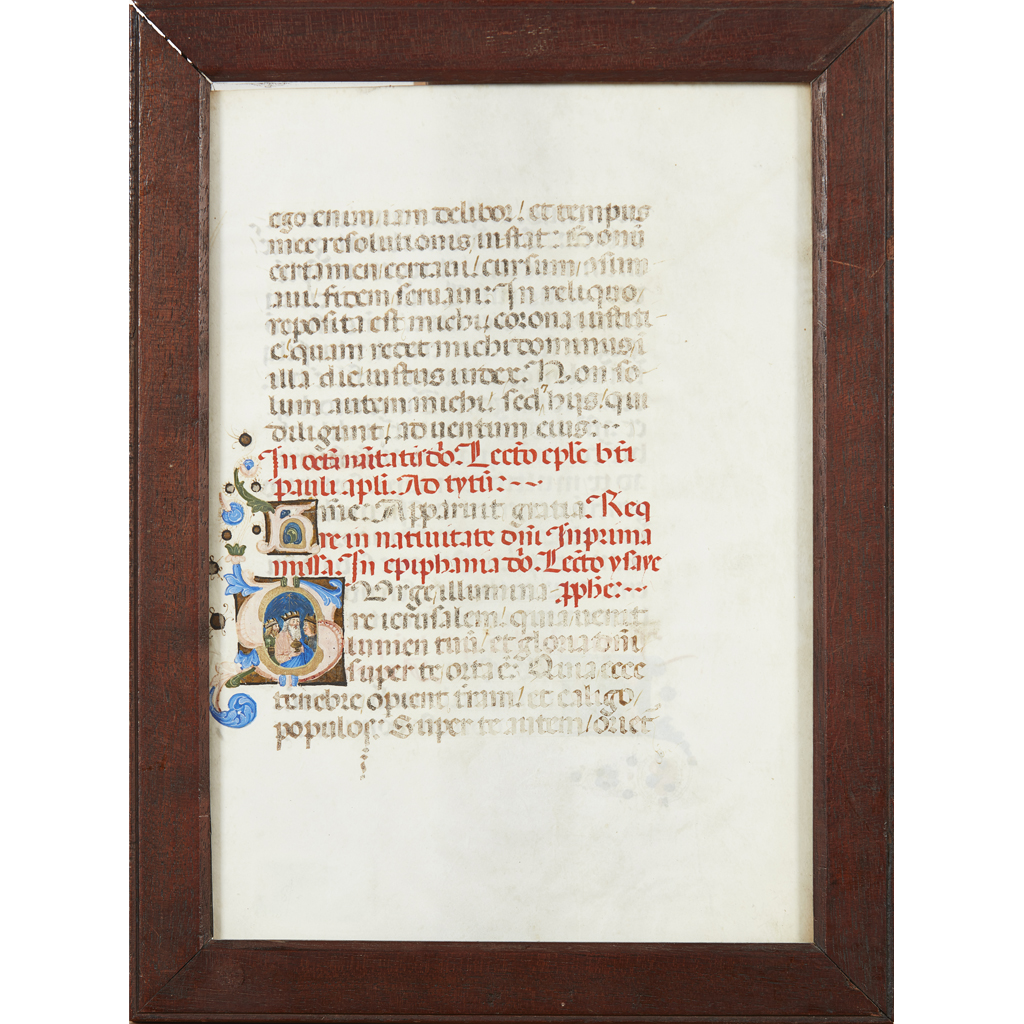 ego enim iam delibor / et tempus
mee resolutionis instat : Bonū
certamen certaui / cursum (con)sum
aui / fidem seruaui : In reliquo /
reposita est michi corona iustiti
e / quam reddet michi dominus i
illa die iustus iudex . Non so
lum autem michi / sed (et) hijs / qui
diligunt / aduentum eius : ··
In octā natiuitatis dōi . Lectō eplē bti
pauli apli . Ad tytū : ~~
me : Apparuit gratia . Req
re in natiuitate dnī In prima
missa . In epiphania dō . Lectō ysaye
Urge illumina pphē : ~~
re ierusalem / quia uenit
lumen tuū / et gloria dnī /
super te orta ē . Quia ecce
tenebre operient trām / et caligo /
populos : Super te autem / oriet